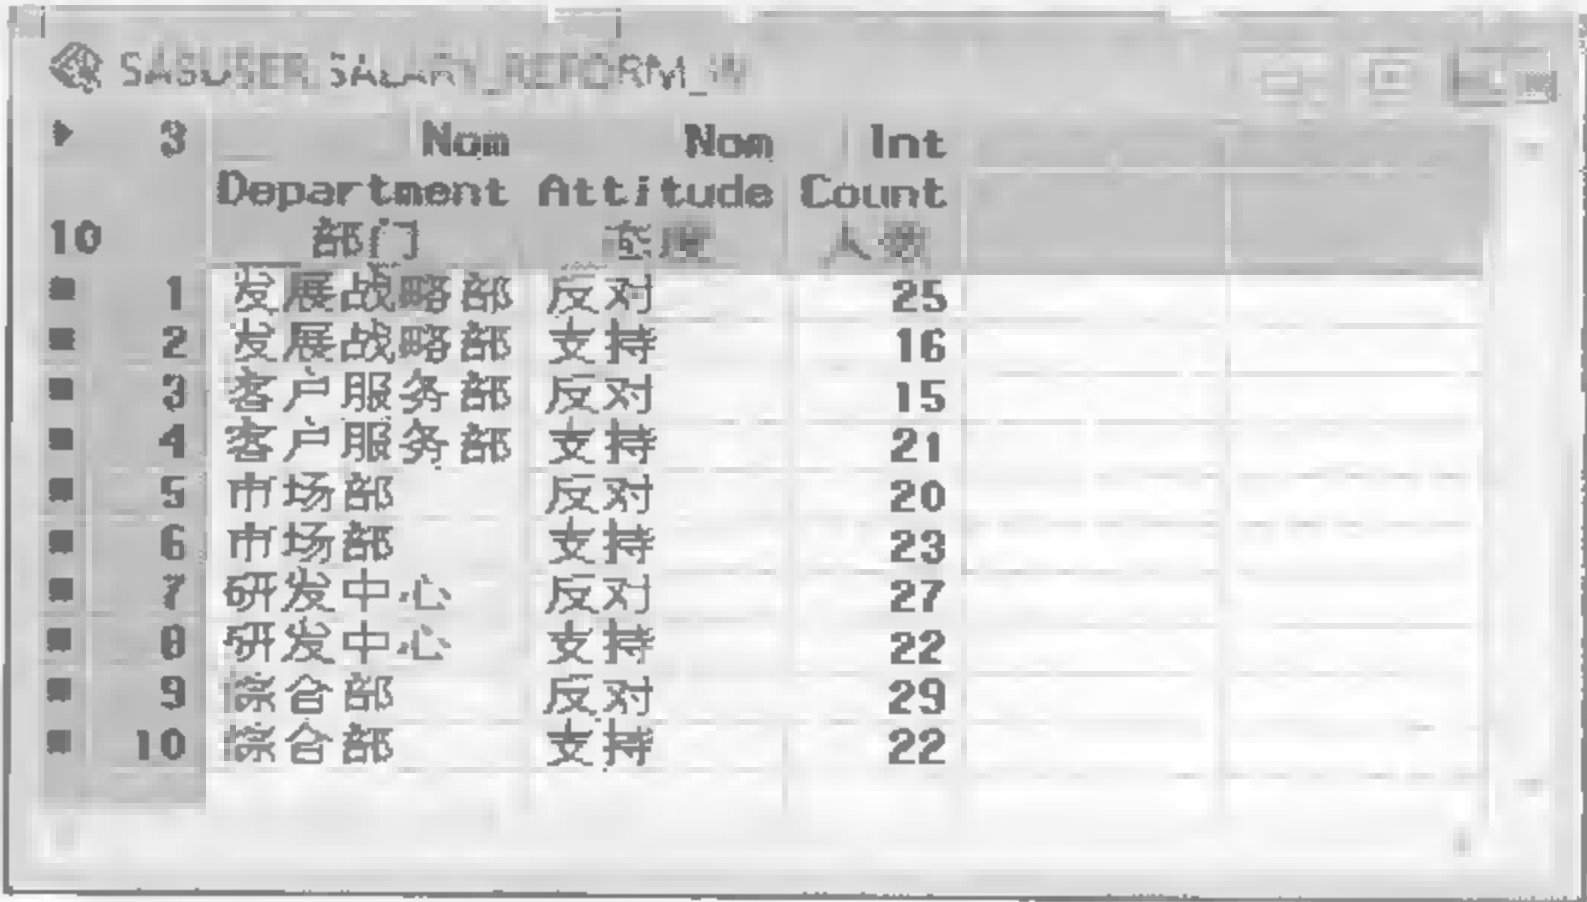 SASUSER.SALARY_REFORM_W
3 Nom Nom Int
Department Attitude Count
10 部门 态度 人数
1 发展战略部 反对 25
2 发展战略部 支持 16
3 客户服务部 反对 15
4 客户服务部 支持 21
5 市场部 反对 20
6 市场部 支持 23
7 研发中心 反对 27
8 研发中心 支持 22
9 综合部 反对 29
10 综合部 支持 22